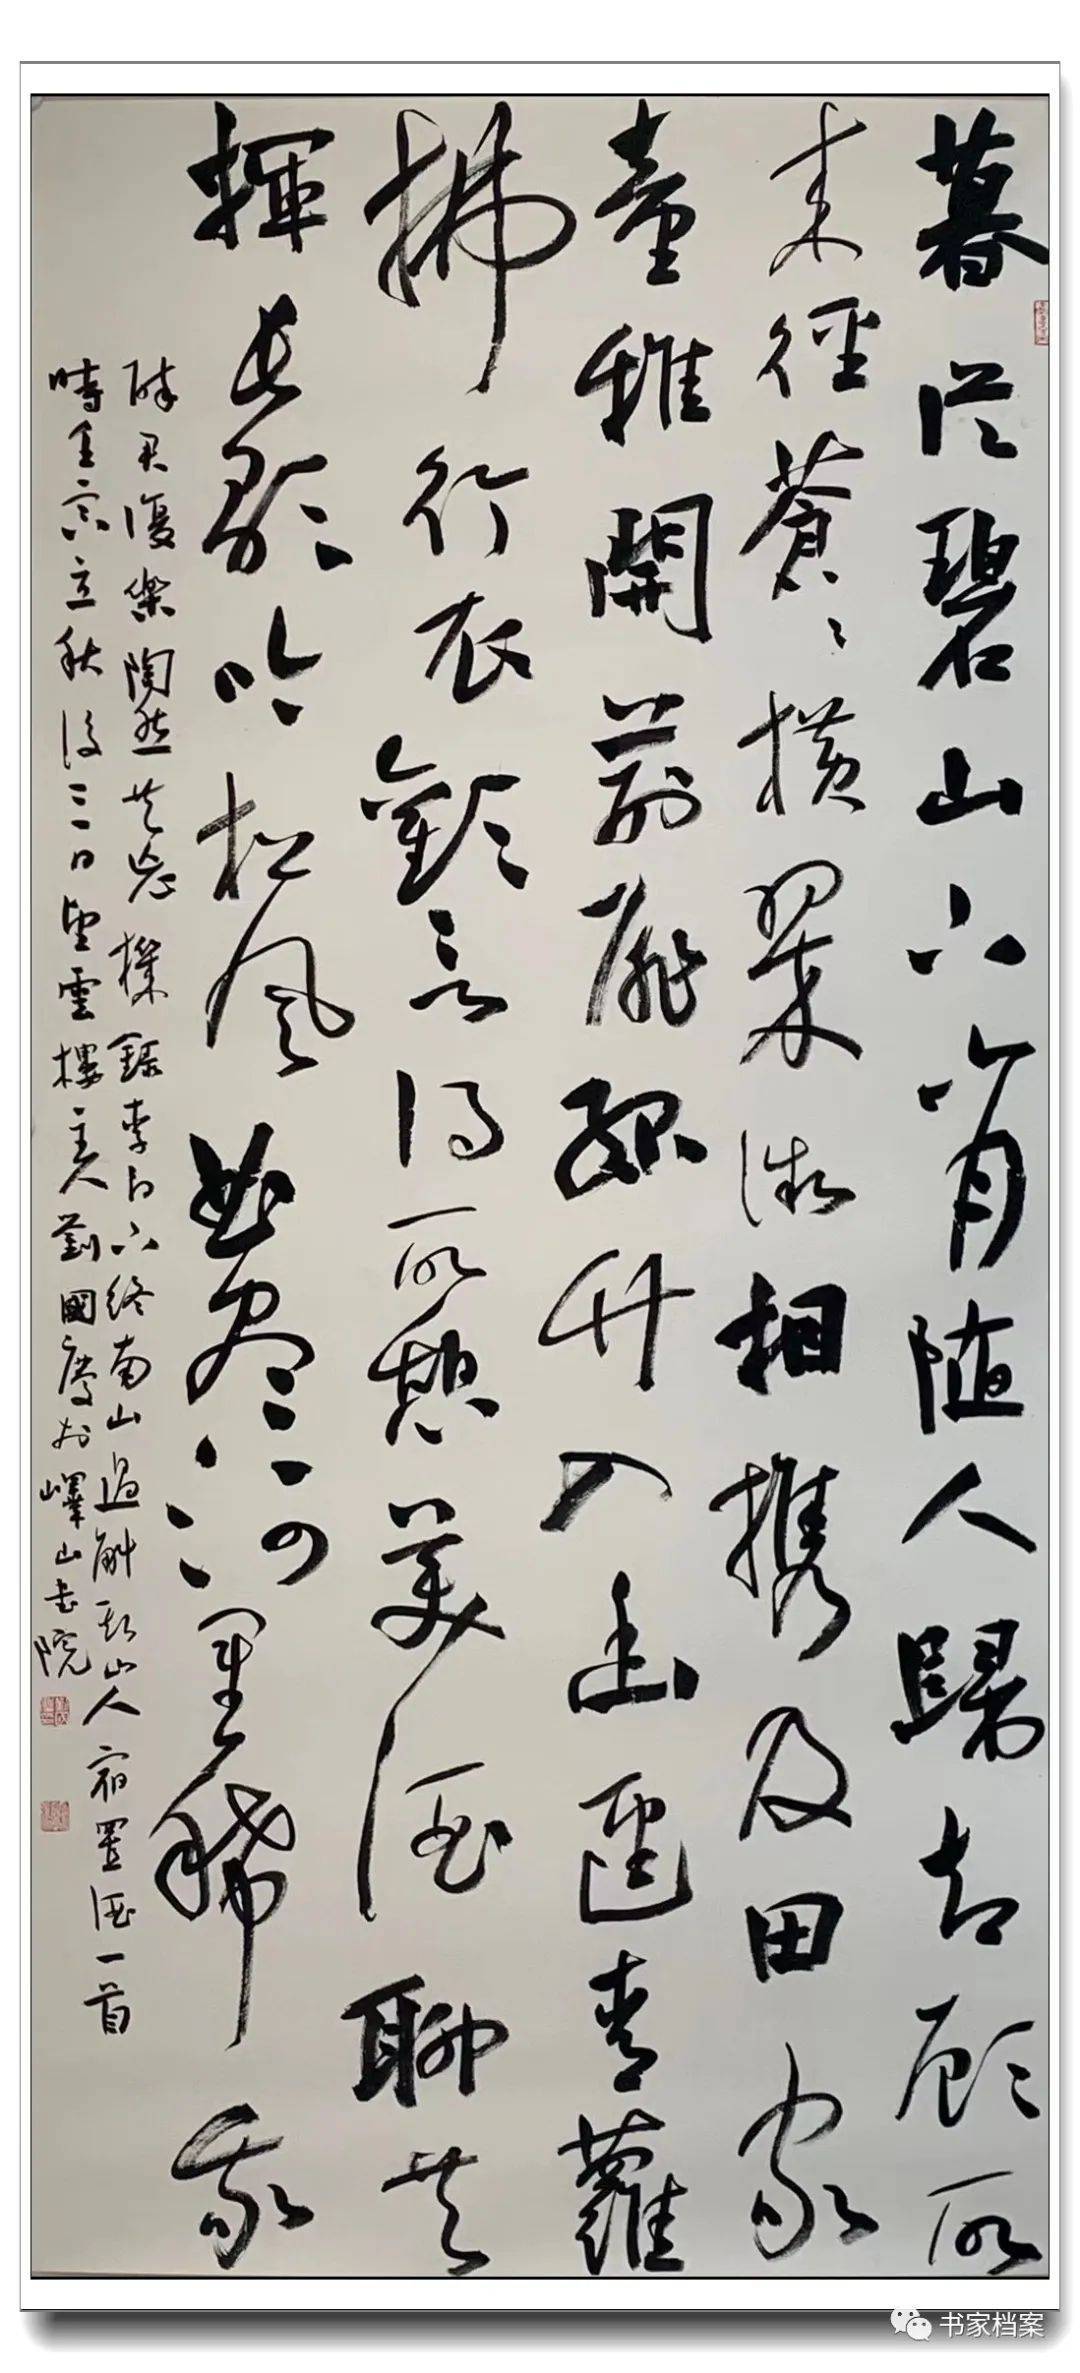 暮從碧山下山月随人歸却顧所
来徑蒼〻横翠微相携及田家
童稚開荊扉緑竹入幽逕青蘿
拂行衣歡言得所憩美酒聊共
揮長歌吟松風曲盡河星稀我
醉君復樂陶然共忘機錄李白下終南山過斛斯山人宿置酒一首
時壬寅立秋後三日望雲樓主人劉國慶於嶧山書院
书家档案